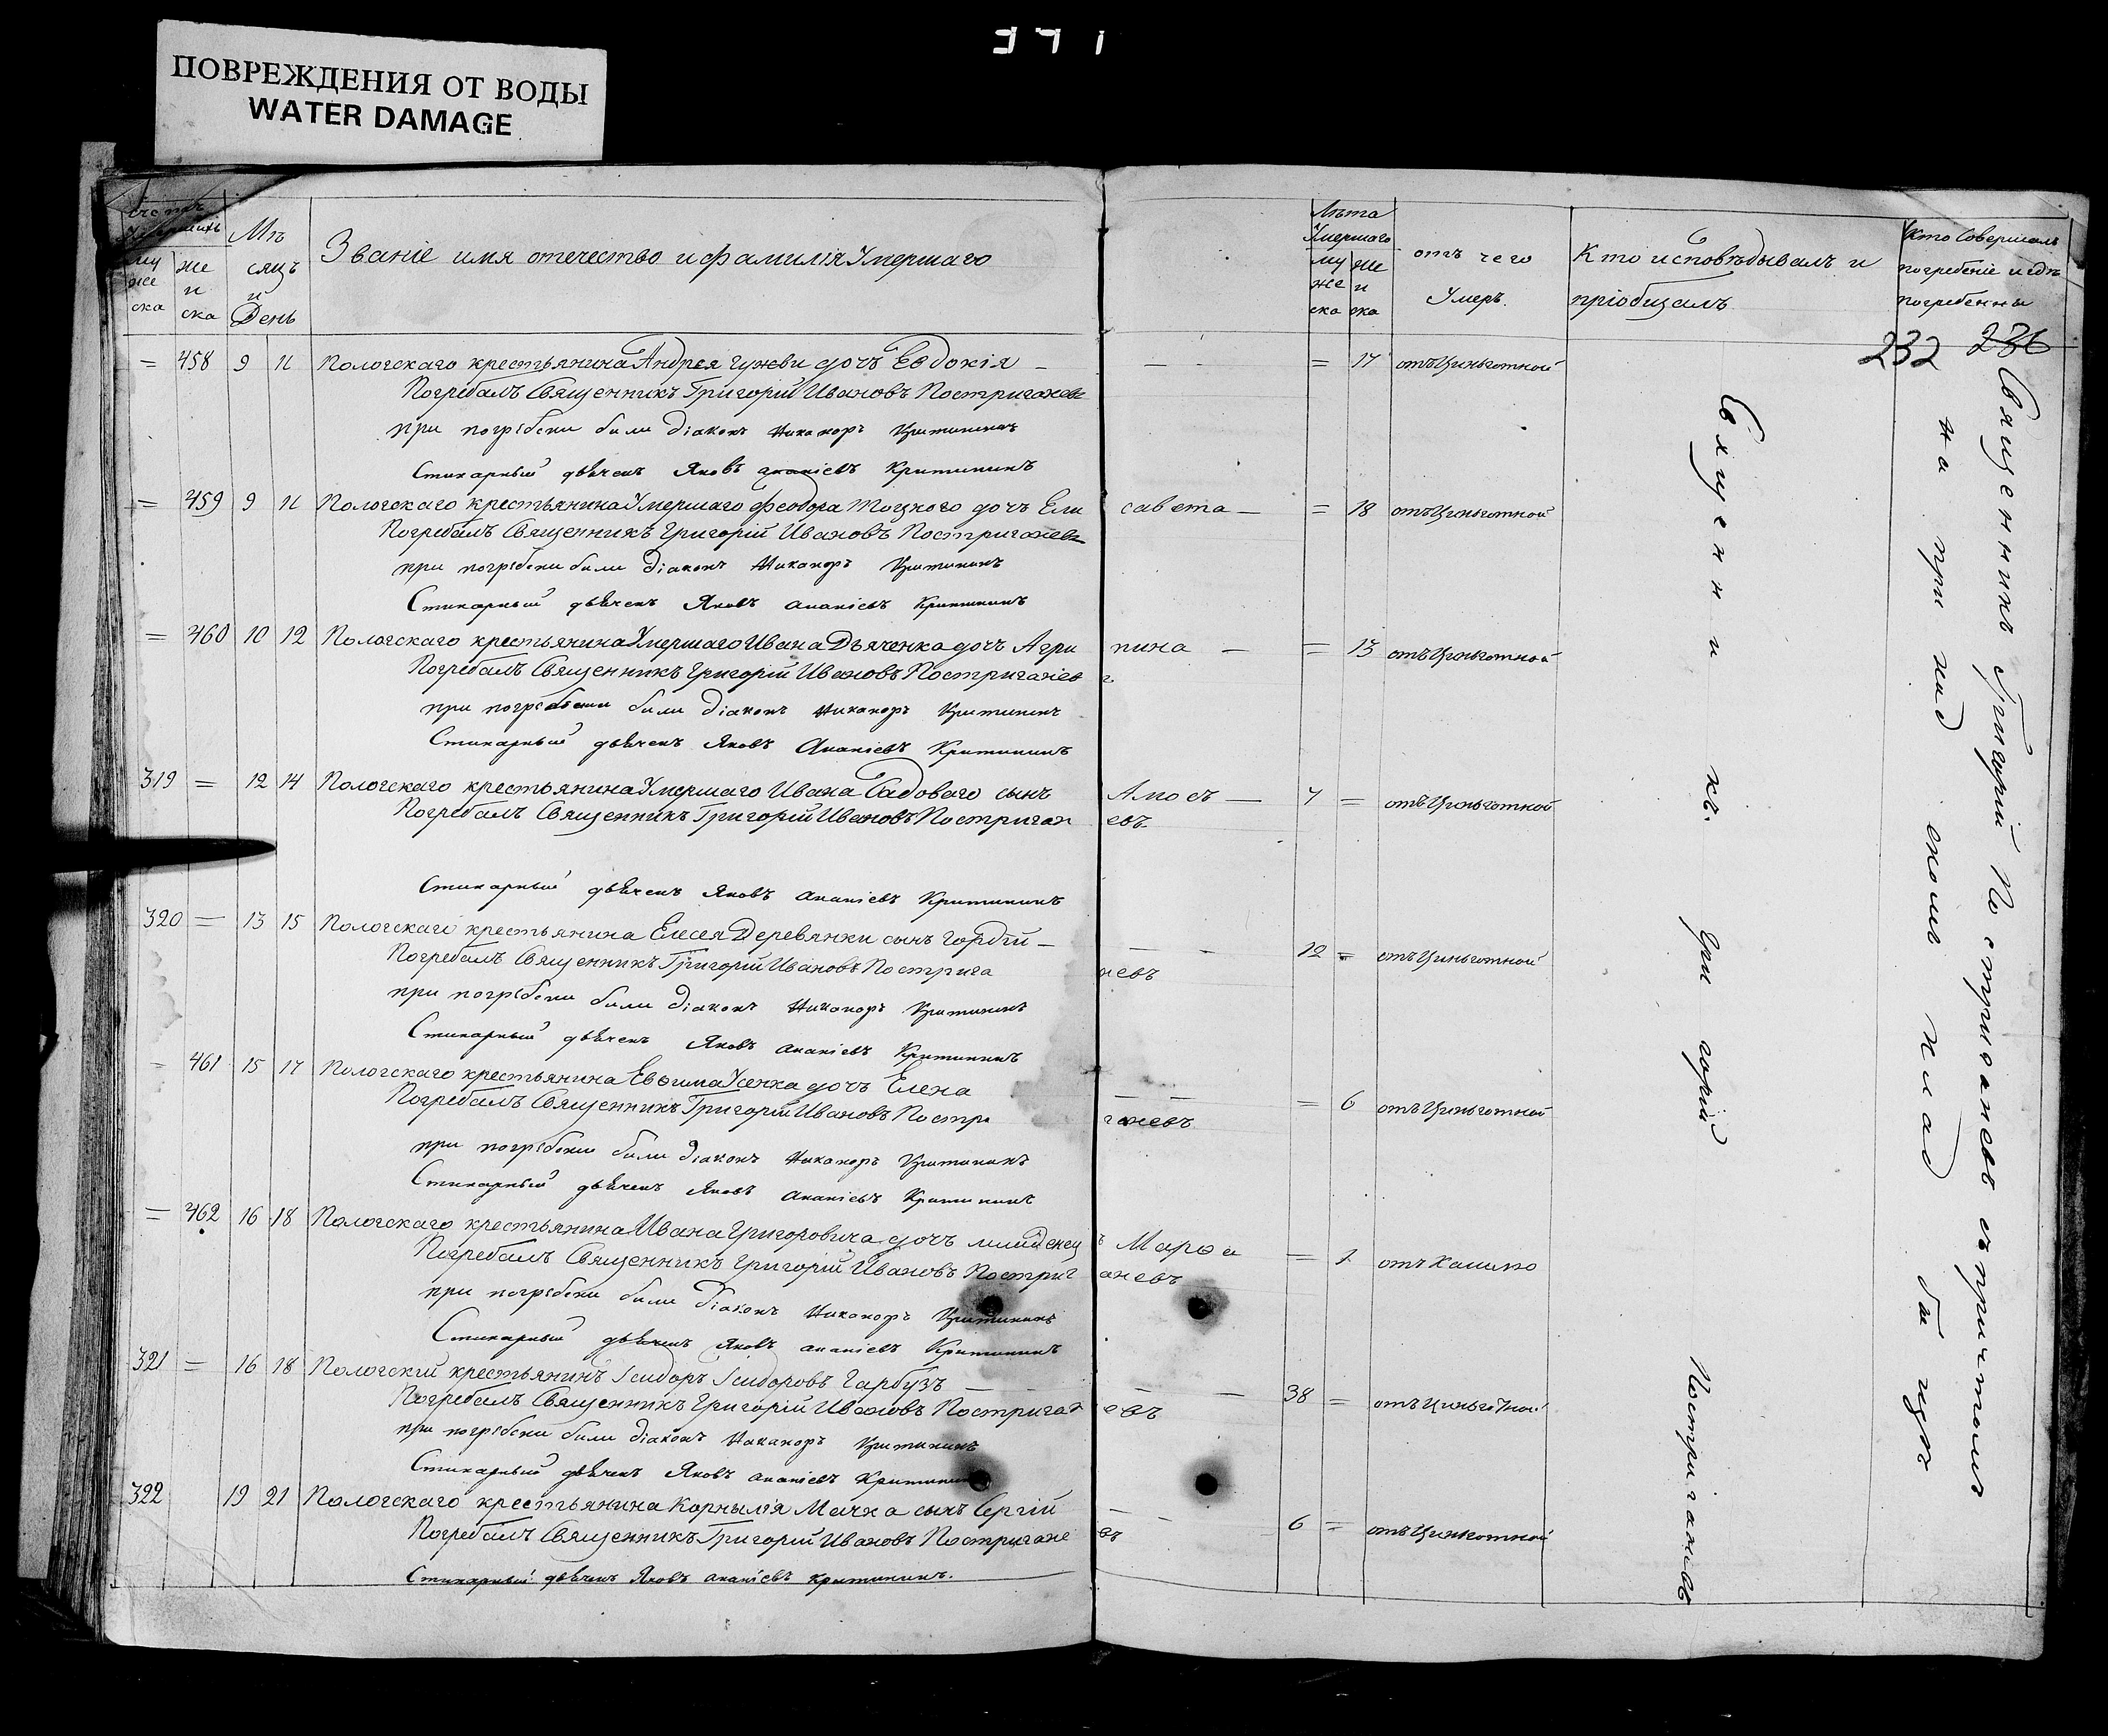 371
ПОВРЕЖДЕНИЯ ОТ ВОДЫ
WATER DAMAGE
Счетъ умершихъ
муже ска
женска
Мѣсяцъ и День
Званіе имя отечество и фамилія Умершаго
Лѣта Умершаго
муже ска
женска
отъ чего Умеръ.
Кто исповѣдывалъ и пріобщалъ
Кто Совершалъ погребеніе и гдѣ погребенны
232 236
= 458 9 11 Пологскаго крестьянина Андрея Гужви дочъ Евдокія — — = 17 отъ Цынготной
Погребалъ Священникъ Григорій Ивановъ Постриганевъ
при погребени били діаконъ Никаноръ Критининъ
Стихарный дьяченъ Яковъ ананіевъ Критининъ
= 459 9 11 Пологскаго крестьянина Умершаго Феодора Тоцкого дочъ Елисавета — = 18 отъ Цынготной
Погребалъ Священникъ Григорій Ивановъ Постриганевъ
при погребени били діаконъ Никаноръ Критининъ
Стихарный дьяченъ Яковъ ананіевъ Критининъ
= 460 10 12 Пологскаго крестьянина Умершаго Ивана Дьяченка дочъ Агрипина — = 13 отъ Цынготной
Погребалъ Священникъ Григорій Ивановъ Постриганевъ
при погребени били діаконъ Никаноръ Критининъ
Стихарный дьяченъ Яковъ Ананіевъ Критининъ
319 = 12 14 Пологскаго крестьянина Умершаго Ивана Садоваго сынъ Амосъ — 7 = отъ Цынготной
Погребалъ Священникъ Григорій Ивановъ Постриганевъ
Стихарный дьяченъ Яковъ ананіевъ Критининъ
320 — 13 15 Пологскаго крестьянина Елесея Деревянки сынъ Гордій — — — 12 = отъ Цынготной
Погребалъ Священникъ Григорій Ивановъ Постриганевъ
при погребени били діаконъ Никаноръ Критининъ
Стихарный дьяченъ Яковъ ананіевъ Критининъ
= 461 15 17 Пологскаго крестьянина Евѳима Усенка дочъ Елена — — = 6 отъ Цынготной
Погребалъ Священникъ Григорій Ивановъ Постриганевъ
при погребени били діаконъ Никаноръ Критининъ
Стихарный дьяченъ Яковъ ананіевъ Критининъ
= 462 16 18 Пологскаго крестьянина Ивана Григоровича дочъ младенецъ Марѳа = 1 отъ Кашлю
Погребалъ Священникъ Григорій Ивановъ Постриганевъ
при погребени били діаконъ Никаноръ Критининъ
Стихарный дьяченъ Яковъ ананіевъ Критининъ
321 = 16 18 Пологский крестьянинъ Ісидоръ Ісидоровъ Гарбузъ — — — 38 = отъ Цынготной
Погребалъ Священникъ Григорій Ивановъ Постриганевъ
при погребени били діаконъ Никаноръ Критининъ
Стихарный дьяченъ Яковъ ананіевъ Критининъ
322 19 21 Пологскаго крестьянина Корнылія Мачка сынъ Сергій — — 6 = отъ Цынготной
Погребалъ Священникъ Григорій Ивановъ Постриганевъ
Стихарный дьяченъ Яковъ ананіевъ критининъ.
Священникъ. Григорій Постриганевъ
Священникъ Григорій Постриганевъ съ причтомъ
на при клад